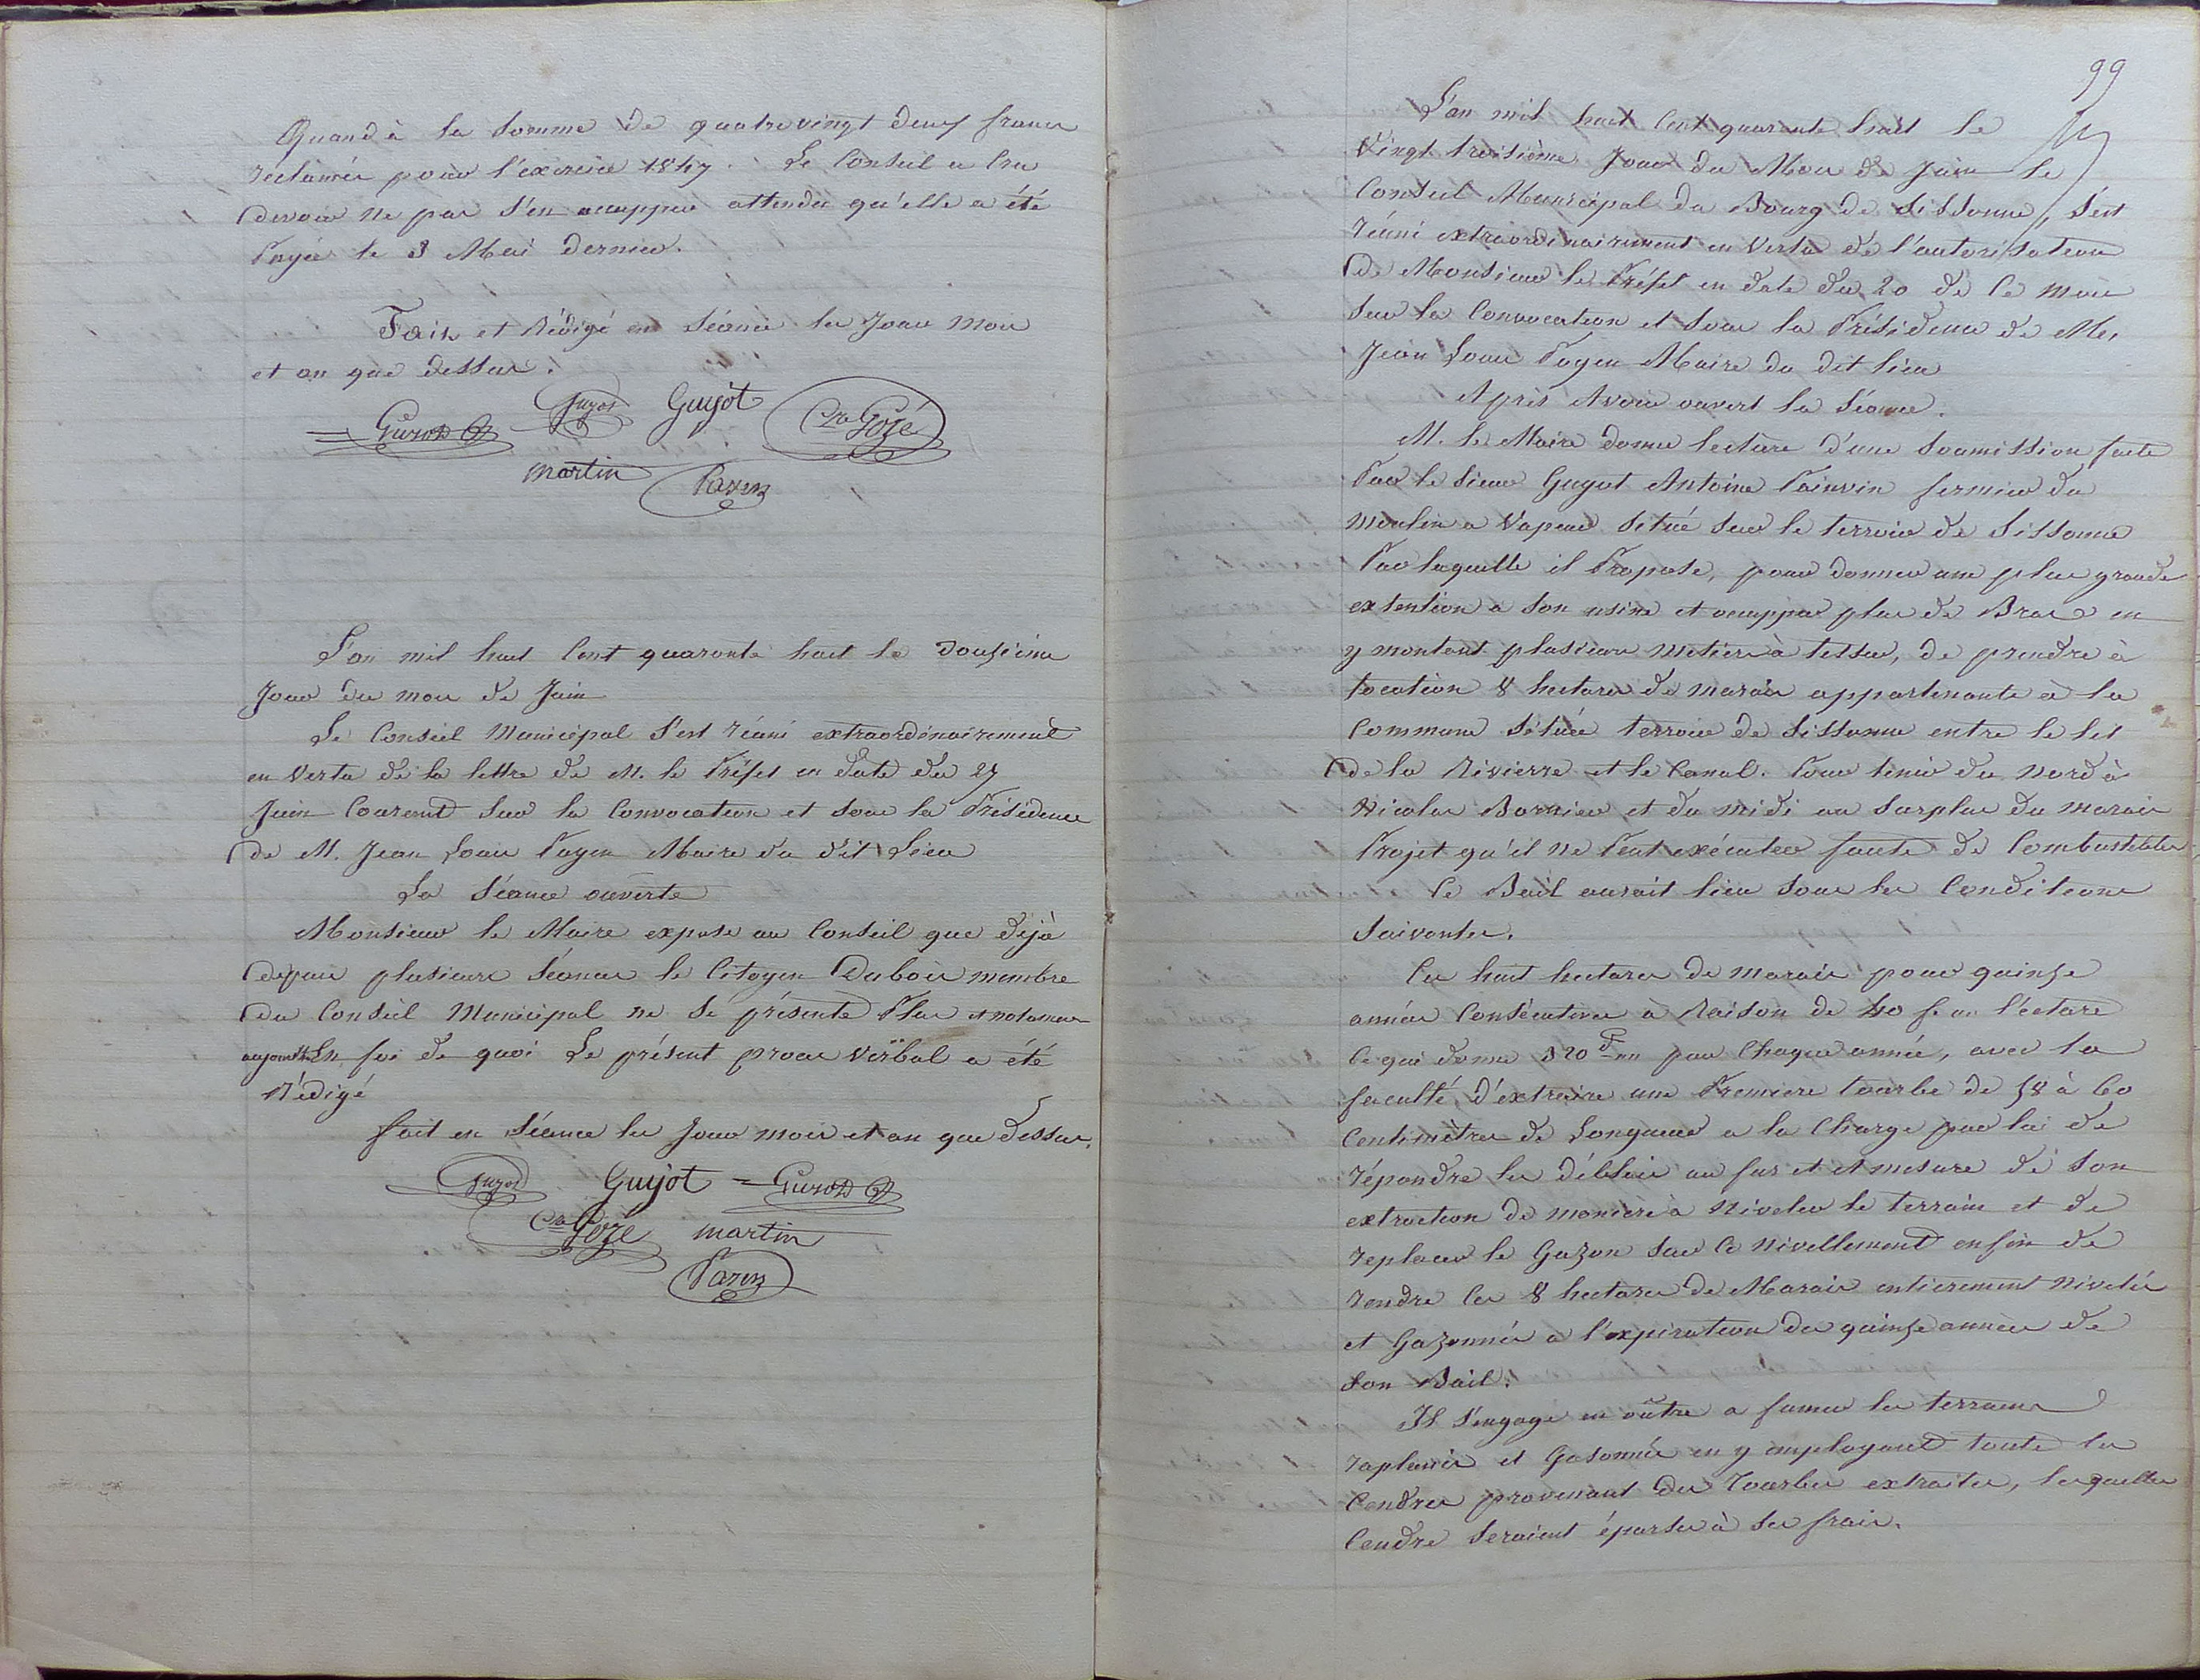 Quand à la somme de quatrevingt deux francs
réclamée pour l'éxercice 1847. Le Conseil a Cru
devoir ne pas s'en occupper attendu qu'elle a été
Payée le 3 Mai dernier.
Fait et Rédigé en Séance les Jour Mois
et an que dessus.
Guyot
Cra Gozé
martin
L'an mil huit Cent quarante huit le Douzième
Jour du mois de Juin
Le Conseil Municipal s'est réuni extraordinairement
en Vertu de la lettre de M. le Préfet en date du 27
Juin Courant Sur la Convocation et sous la Présidence
de M. Jean Louis Payen Maire du dit Lieu
La Séance ouverte
Monsieur le Maire expose au Conseil que déjà
depuis plusieurs Séances le Citoyen Dubois membre
du Conseil Municipal ne se présente Plus et notament
aujourd'hui En foi de quoi Le présent procès Verbal a été
Rédigé
fait en Séance les Jour mois et an que dessus.
Guyot
Cra Gozé martin
99
L'an mil huit Cent quarante huit le
Vingt troisième Jour du Mois de Juin le
Conseil Municipal du Bourg de Sissonne, s'est
réuni extraordinairement en Vertu de l'autorisation
de Monsieur le Préfet en date du 20 de Ce mois
sur la Convocation et sous la Présidence de Mr
Jean Louis Payen Maire du dit lieu
Après Avoir ouvert la Séance.
M. le Maire donne lecture d'une Soumission faite
Par le Sieur Guyot Antoine Painvin fermier du
Moulin a Vapeur Situé sur le terroir de Sissonne
Par laquelle il Propose, pour donner une plus grande
extention a son usine et occupper plus de Bras en
y montant plusieurs Metiers à tisser, de prendre à
location 8 hectares de marais appartenants à la
Commune Située terroir de Sissonne entre le lit
de la Rivierre et le Canal. Pour tenir du Nord à
Nicolas Bernier et du midi au surplus du marais
Projet qu'il ne Peut exécuter faute de Combustibles
Ce Bail aurait lieu sous les Conditions
Suivantes.
Ces huit hectares de marais pour quinze
années Consécutives a Raison de 40 f. l'éctare
Ce qui donne 320 f pour Chaque année, avec la
faculté d'éxtraire une Premiere tourbe de 58 à 60
Centimètres de Longueur a la Charge par lui de
répandre les déblais au fur et et mesure de son
extraction de maniere à Niveler le terrain et de
replacer le Gazon sur Ce Nivellement enfin de
rendre Ces 8 hectares de Marais entierement Nivelés
et Gazonnés a l'expiration des quinze années de
son Bail.
Il s'engage en oûtre a fumer les terrains
raplanis et Gasonnés en y employant toute les
Cendres provenant des Tourbes extraites, lesquelles
Cendre seraient éparses à ses frais.